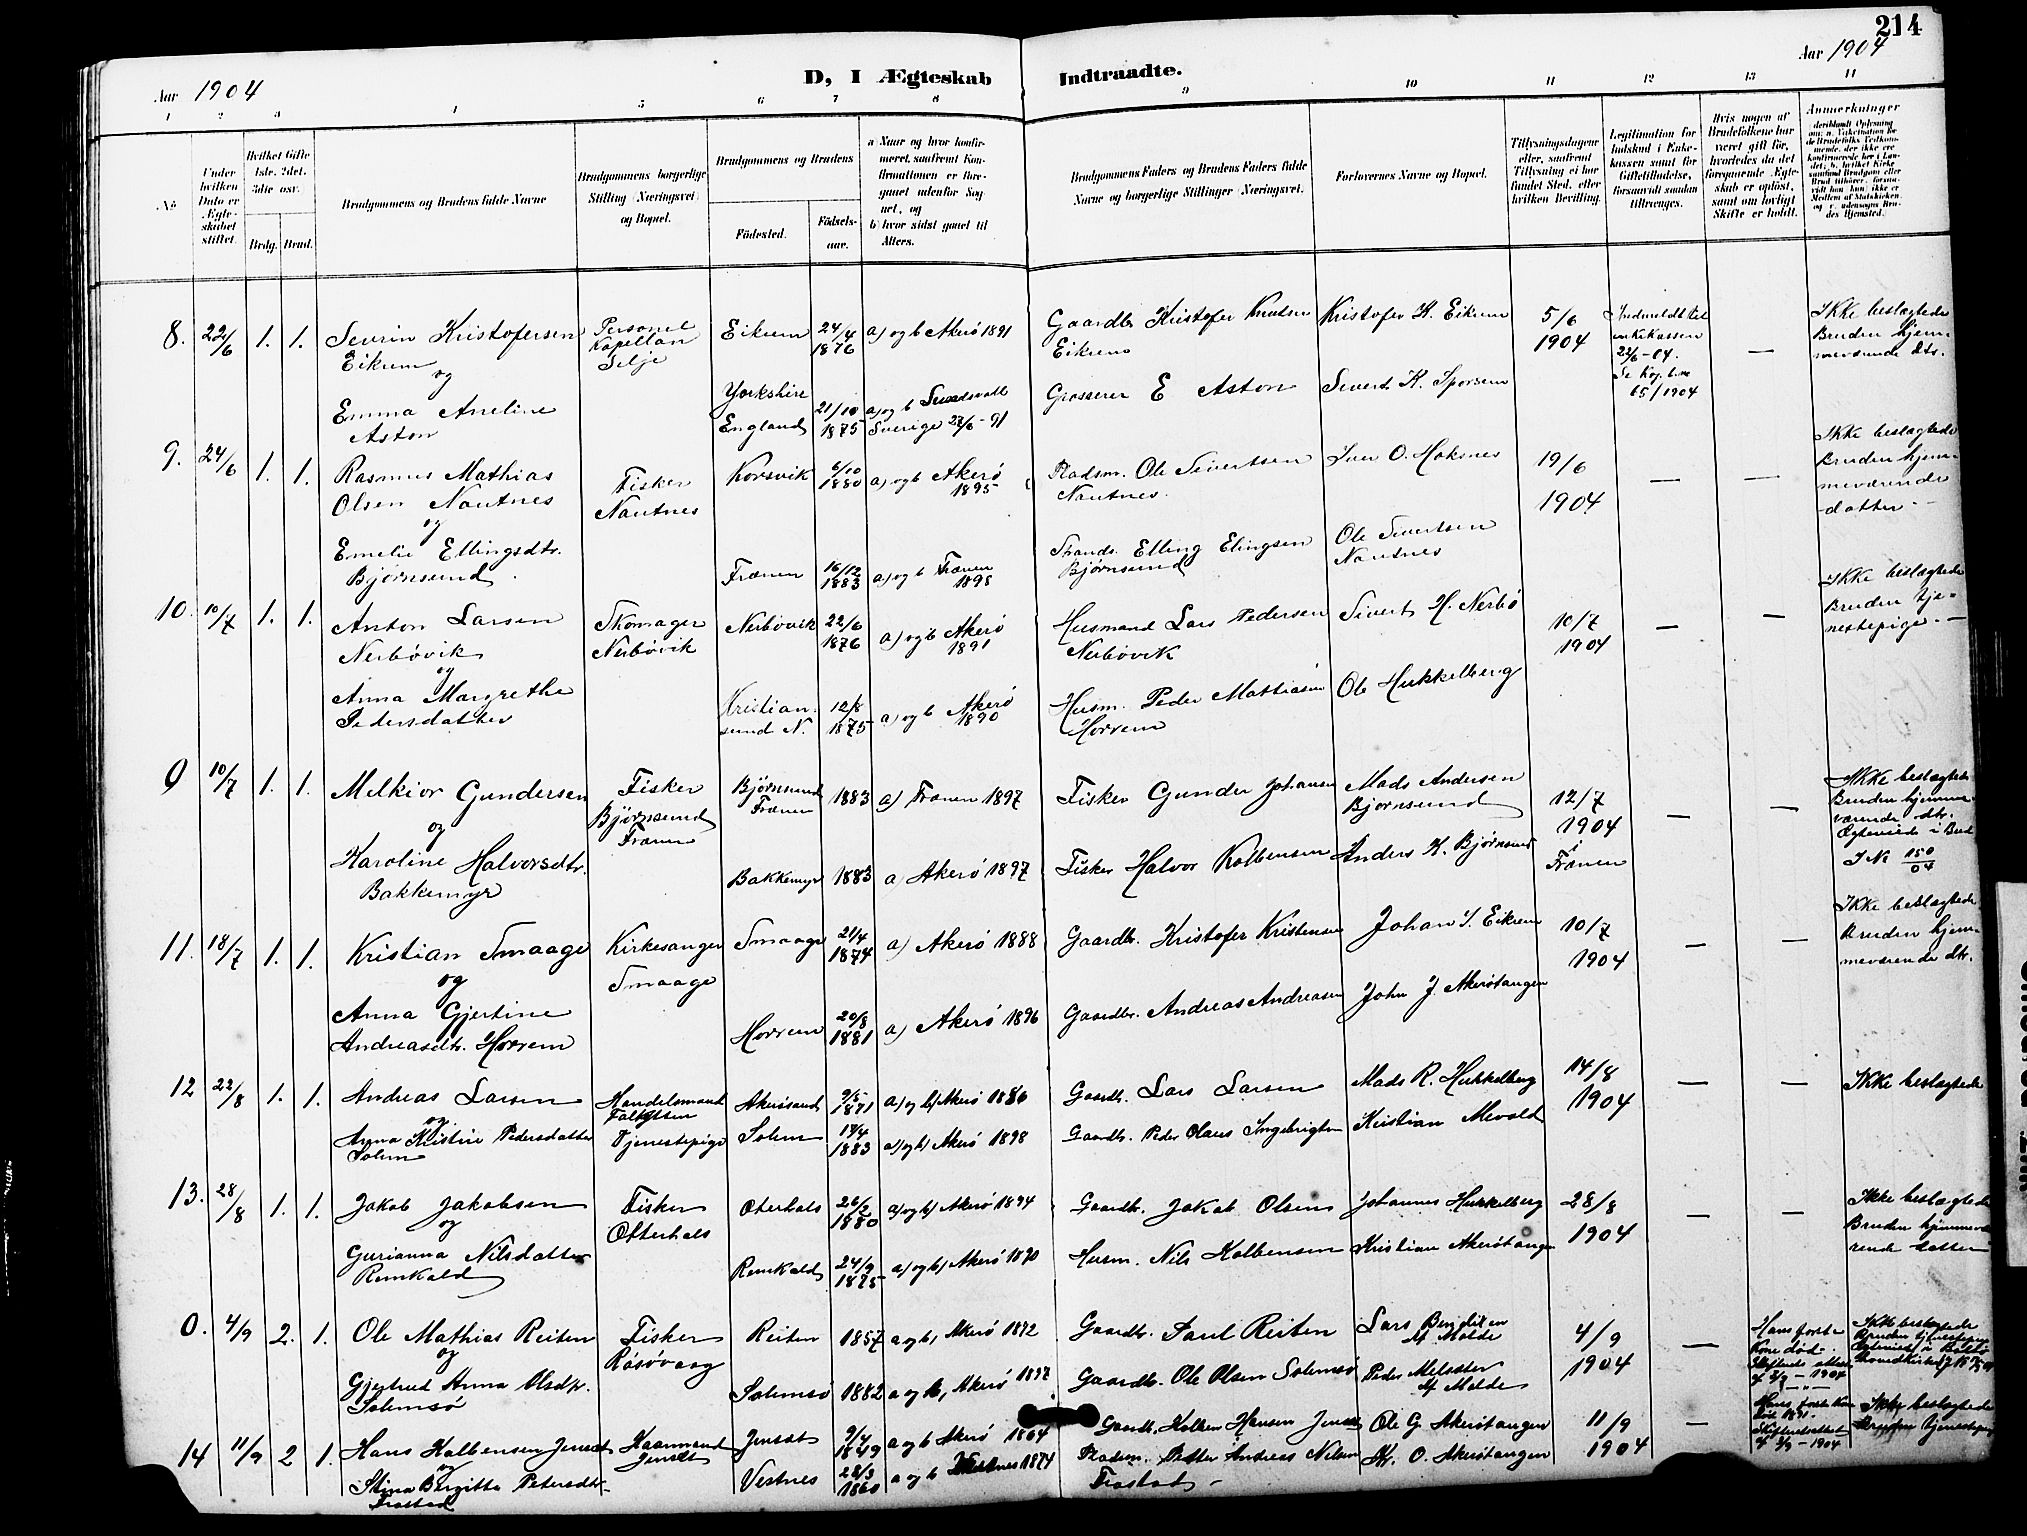 214
Aar 1904
D, I Ægteskab Indtraadte.
Aar 1904
1 2 3 4 5 6 7 8 9 10 11 12 13 14
No
Under hvilken Dato er Ægteskabet stiftet.
Hvilket Gifte 1ste, 2det, 3die osv.
Brdg. Brud.
Brudgommens og Brudens fulde Navne
Brudgommens borgerlige Stilling (Næringsvei) og Bopæl.
Brudgommens og Brudens
Födested.
Födselsaar.
a) Naar og hvor konfirmeret, saafremt Konfirmationen er foregaaet udenfor Sognet, og
b) hvor sidst gaaet til Alters.
Brudgommens Faders og Brudens Faders fulde Navne og borgerlige Stillinger (Næringsvei.
Forlovernes Navne og Bopæl.
Tillysningsdagene eller, saafremt Tillysning ei har fundet Sted, efter hvilken Bevilling.
Legitimation for Indskud i Enkekassen samt for Giftetilladelse, forsaavidt saadan tiltrænges.
Hvis nogen af Brudefolkene har været gift før, hvorledes da det foregaaende Ægteskab er oplöst, samt om lovligt Skifte er holdt.
Anmerkninger
8. 22/6 1. 1. Sevrin Kristofersen Eikrem
og
Emma Aneline Aston
Personel Kapellan Selje
Eikrem 24/4 1876 a) og b Akerö 1891
Yorkshire England 21/10 1875 a) og b Sundsvall Sverige 27/6-91
Gaardbr Kristofer Knutsen Eikrem
Grosserer E Aston
Kristofer K. Eikrem
Sivert K. Sporsem
5/6 1904
Indmeldt til enkekassen 22/6-04.
65/1904
—
Ikke beslægtede Bruden hjemmeværende dtr.
9. 24/6 1. 1. Rasmus Mathias Olsen Nautnes
og
Emelie Ellingsdtr. Björnsund
Fisker Nautnes
Korsvik 6/10 1880 a) og b Akerö 1895
Frænen 16/12 1883 a) og b Frænen 1898
Pladsm. Ole Sivertsen Nautnes.
Strands. Elling Elingsen Björnsund
Iver O. Hoksnes
Ole Sivertsen Nautnes
19/6 1904
— —
Ikke beslægtede Bruden hjemmeværende datter
10. 10/7 1. 1. Anton Larsen Nerbövik
og
Anna Margrethe Pedersdatter
Skomager Nerbövik
Nerbövik 22/6 1876 a) og b Akerö 1891
Kristiansund N. 12/8 1875 a) og b Akerö 1890
Husmand Lars Pedersen Nerbövik
Husm. Peder Mathiasen Horrem
Sivert H. Nerbö
Ole Hukkelberg
10/7 1904
— —
Ikke beslægtede Bruden tjenestepige. —
0 10/7 1. 1. Melkior Gundersen
og
Karoline Halvorsdtr. Bakkemyr
Fisker Björnsund Frænen
Björnsund Frænen 1883 a) Frænen 1897
Bakkemyr 1883 a) Akerö 1897
Fisker Gunder Johansen
Fisker Halvor Kolbensen
Mads Andersen Björnsund
Anders K. Björnsund
12/7 1904 i Frænen
— —
Ikke beslægtede Bruden hjemmeværende dtr.
J No 150/04
11. 18/7 1. 1. Kristian Smaage
og
Anna Gjertine Andreasdtr. Horrem
Kirkesanger Smaage
Smaage 21/4 1874 a) Akerö 1888
Horrem 20/8 1881 a) Akerö 1896
Gaardbr. Kristofer Kristensen
Gaardbr. Andreas Andreasen
Johan S. Eikrem
John J. Akerötangen
10/7 1904
— —
Ikke beslægtede Bruden hjemmeværende dtr.
12 22/8 1. 1. Andreas Larsen
og
Anna Kristine Pedersdatter Solem
Handelsmand
Tjenestepige
Akerösund 9/5 1871 a) og b) Akerö 1886
Solem 17/4 1883 a) og b) Akerö 1898
Gaardb. Lars Larsen
Gaardb. Peder Olaus Ingebrigtsen
Mads R. Hukkelberg
Kristian Mevold
14/8 1904
— —
Ikke beslægtede
13. 28/8 1. 1. Jakob Jakobsen
og
Gurianna NilsdatterRemkald
Fisker Otterhals
Oterhals 26/2 1880 a) og b) Akerö 1894
Remkald 24/9 1875 a) og b) Akerö 1890
Gaardb. Jakob Olsen
Husm. Nils Kolbensen
Johannes Hukkelberg
Kristian Akerötangen
28/8 1904
— —
Ikke beslægtede Bruden hjemmeværende datter
0. 4/9 2. 1. Ole Mathias Reiten
og
Gjertrud Anna Olsdtr. Solemsö
Fisker Rösövaag
Reiten 1857 a og b, Akerö 1872
Solemsö 1882 a og b, Akerö 1897
Gaardb. Paul Reiten
Gaardb. Ole Olsen Solemsö
Lars Bendixen af Molde
Peder Melseter af Molde
4/9 1904
—
Hans förste Kone död.
Ikke beslægtede
14 11/9 2 1. Hans Kolbensen Jenset
og
Stina Birgitta Petersdtr. Frostad
Kaarmand Jenset
Jenset 9/4 1849 a og b Akerö 1864
Vestnes 28/3 1860 a og b Vestnes 1874
Gaardb. Kolben Hansen Jenset
Pladsm. Petter Andreas Nilsen Frostad
Ole G. Akerötangen
Kr. O. Akerötangen
11/9 1904
—
Ikke beslægtede